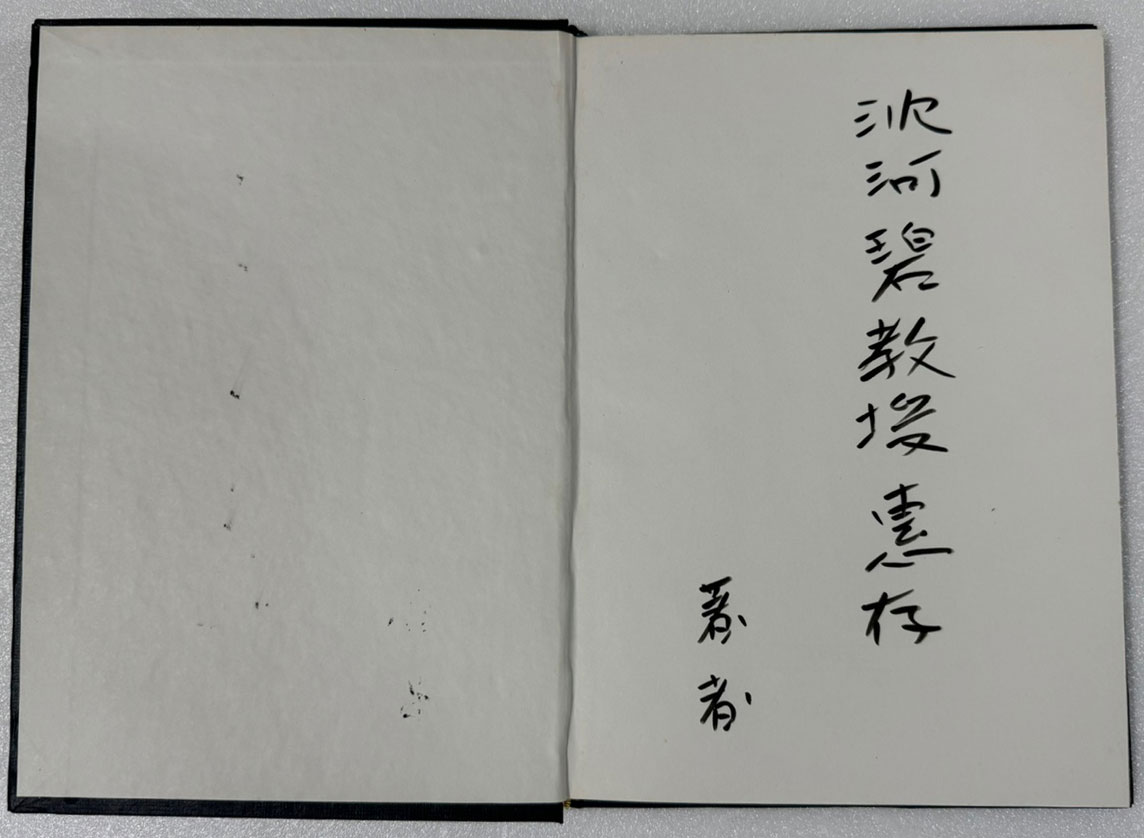 沈河碧教授惠存
著者